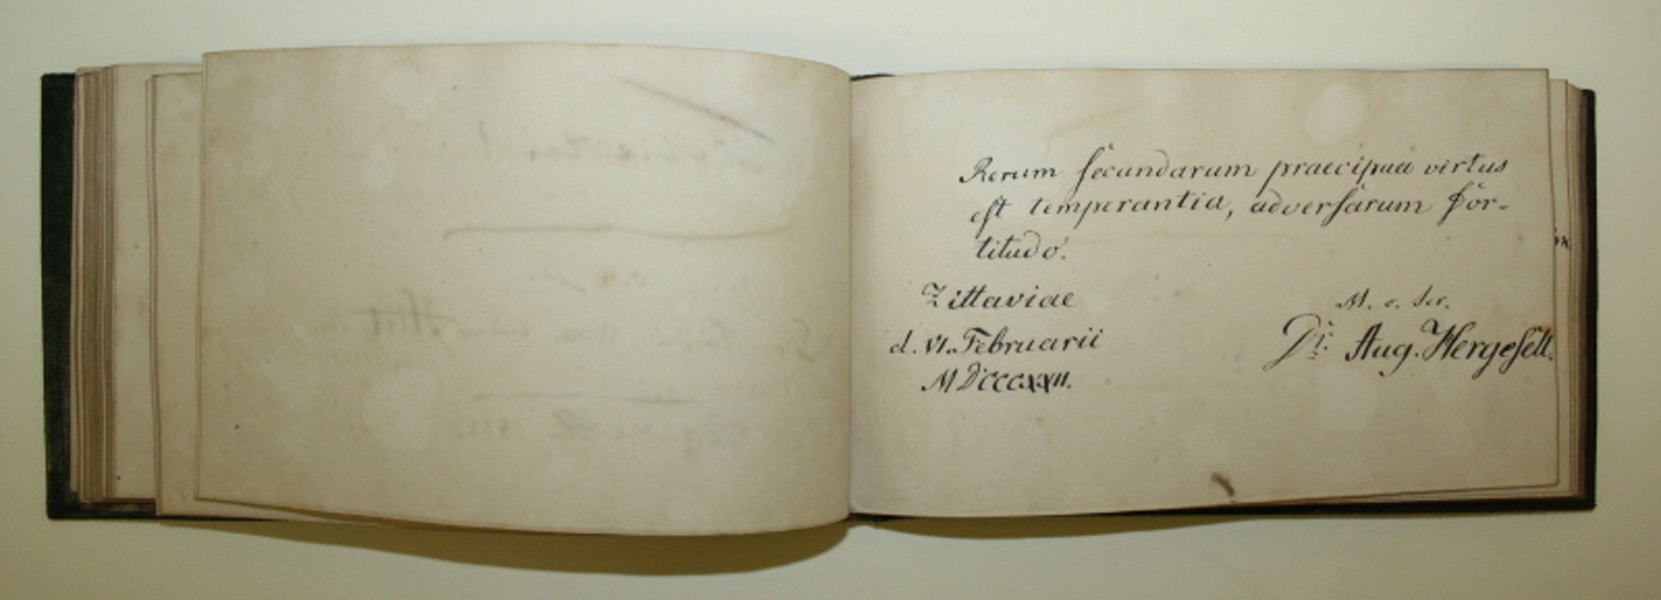 Rerum secundarum praecipua virtus
est temperantia, adversarum for-
titudo.
Zittaviae
d. VI. Februarii
MDCCCXXII.
M. c. scr.
Dr. Aug. Hergesell.